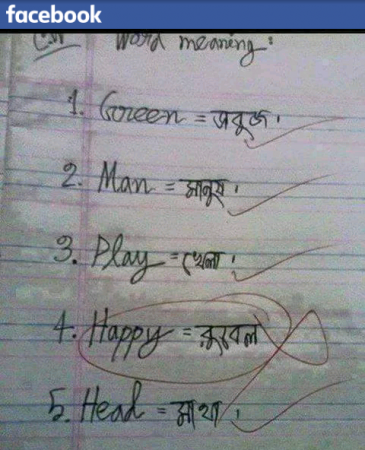 facebook
Word meaning:
1. Green = সবুজ।
2. Man = মানুষ।
3. Play = খেলা।
4. Happy = রুবেল
5. Head = মাথা।